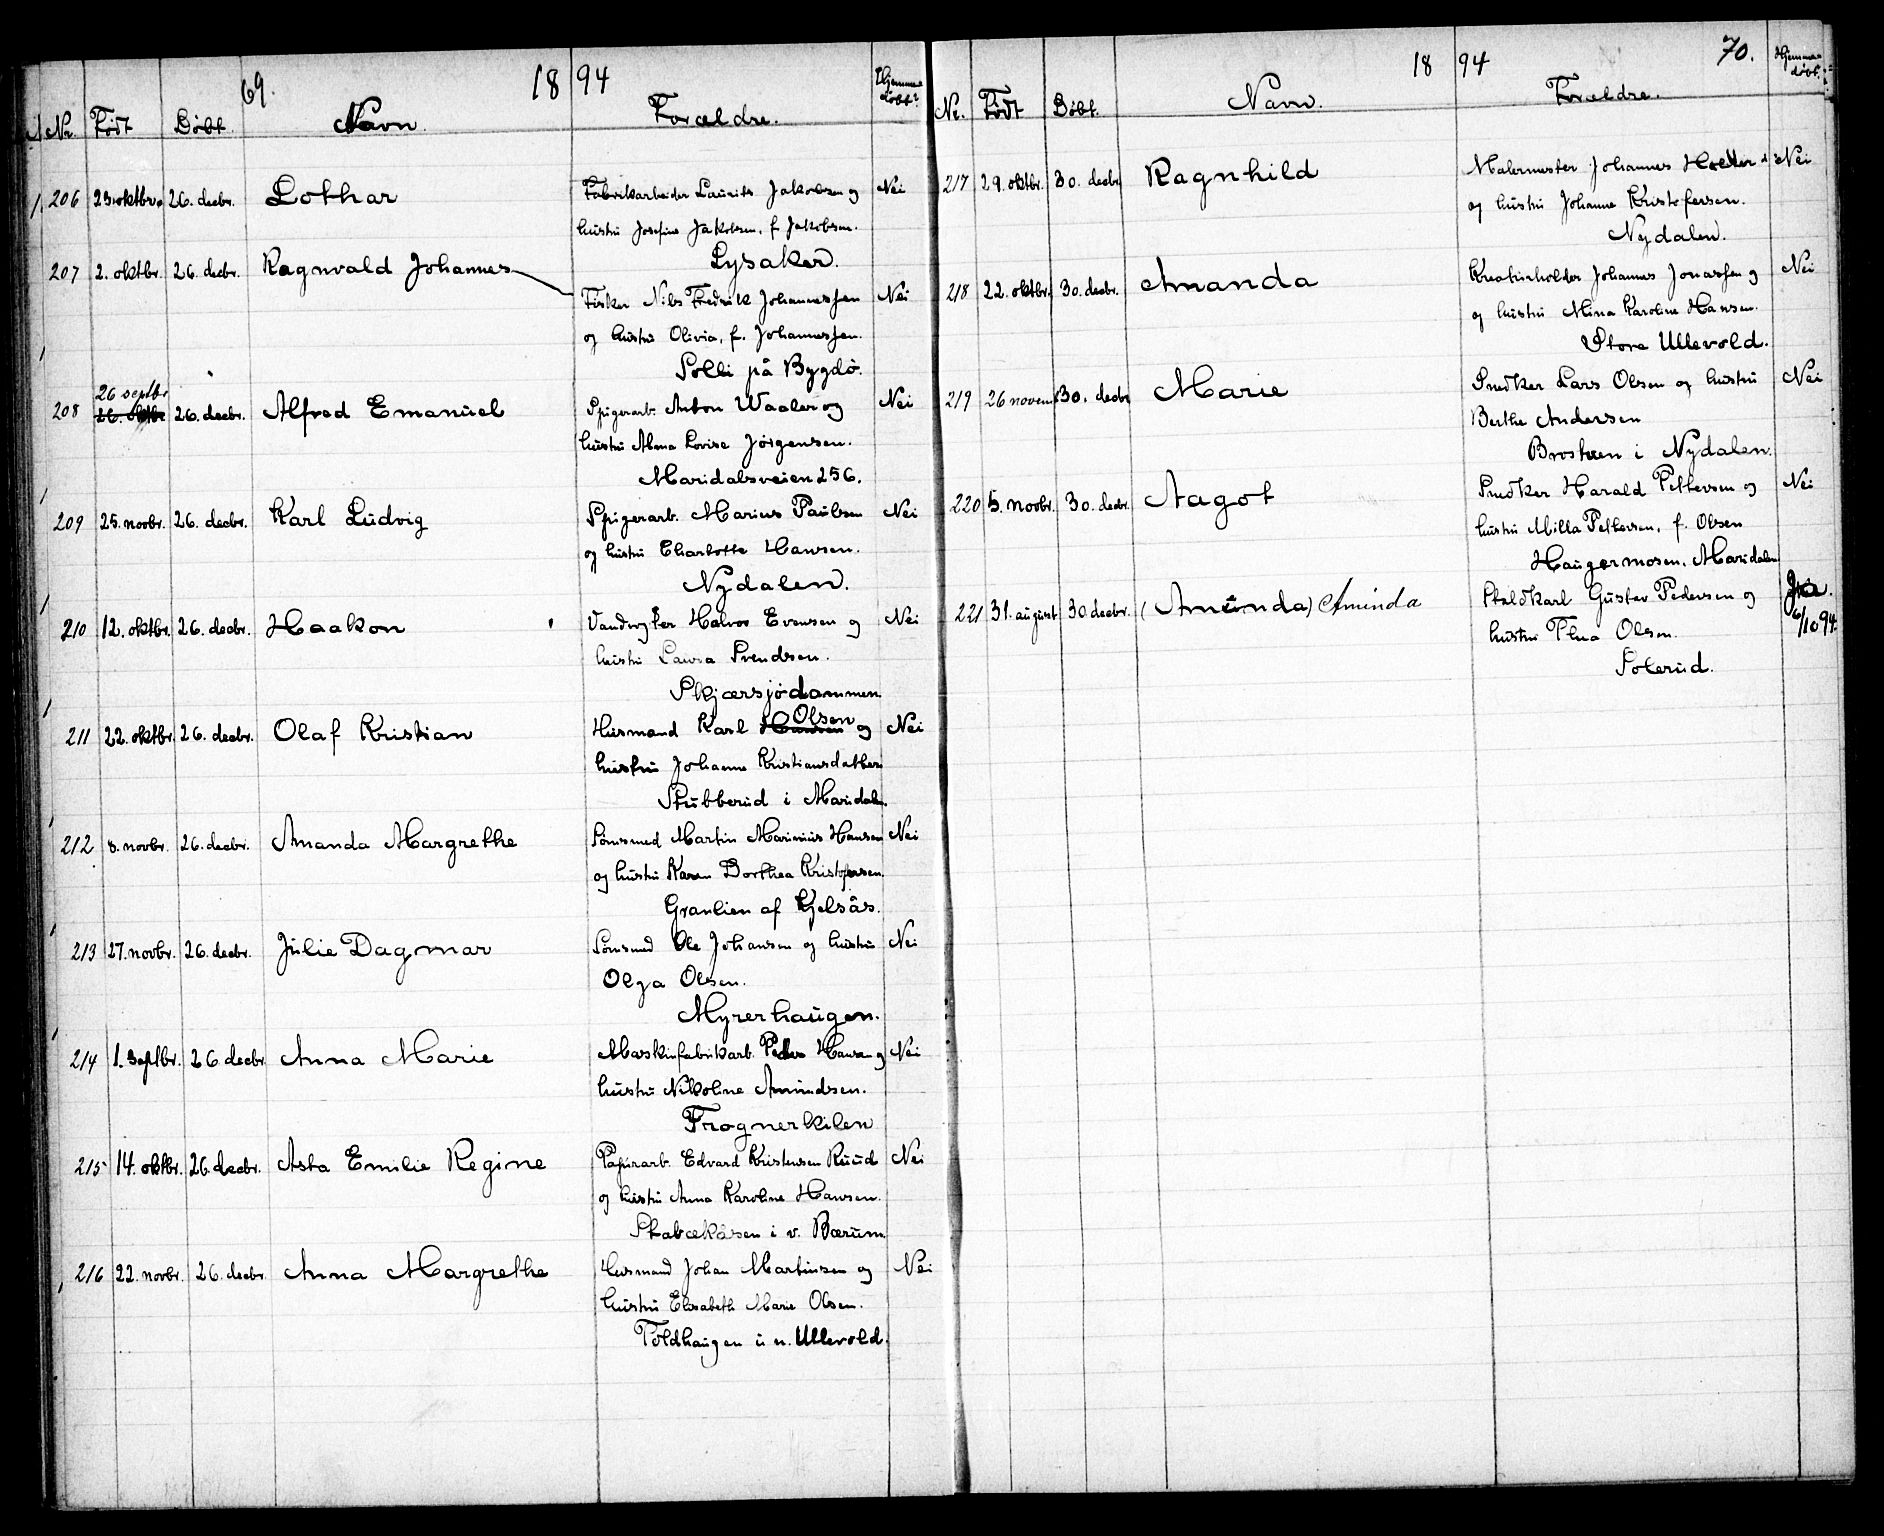 69. 1894
Nr. Født Døbt. Navn. Forældre. Hjemmedøbt?
206 23. oktbr. 26. decbr. Lothar Fabrikarbeider Laurits Jakobsen og Nei
hustru Josefine Jakobsen, f. Jakobsen.
Lysaker.
207 2. oktbr. 26. decbr. Ragnvald Johannes
Fisker Nils Fredrik Johannessen Nei
og hustru Olivia, f. Johannessen.
Solli på Bygdö.
26 septbr
208 26. oktbr 26. decbr. Alfred Emanuel Spigerarb. Anton Waaler og Nei
hustru Lovise Jørgensen.
Maridalsveien 256.
209 25. novbr. 26. decbr. Karl Ludvig Spigerarb. Marius Paulsen Nei
og hustru Charlotte Hansen.
Nydalen.
210 12. oktbr. 26. decbr. Haakon Halvor Evensen og Nei
hustru Laura Svendsen.
Skjærsjödammen.
Olsen
211 22. oktbr. 26. decbr. Olaf Kristian Husmand Karl Hansen og Nei
hustru Johanne Kristiansdatter.
Stubberud i Maridalen.
212 8. novbr. 26. decbr. Amanda Margrethe Sømsmed Martin Marinius Hansen Nei
og hustru Karen Dorthea Kristofersen.
Granlien af Kjelsås.
213 27. novbr. 26. decbr. Julie Dagmar Sømsmed Ole Johansen og hustru Nei
Olga Olsen.
Myrerhaugen.
214 1. septbr. 26 decbr Anna Marie Maskinfabrikarb. Peder Hansen og Nei
hustru Nikoline Amundsen.
Frognerkilen
215 14. oktbr. 26. decbr. Asta Emilie Regine Papirarb. Edvard Kristensen Ruud Nei
og hustru Anna Karoline Hansen.
Stabækåsen i v. Bærum.
216 22. novbr. 26. decbr. Anna Margrethe Husmand Johan Martinsen og Nei
hustru Elisabeth Marie Olsen.
Toldhaugen u. n. Ullevold.
1894 70.
Nr. Født Døbt. Navn. Forældre. Hjemmedøbt?
217 29. oktbr. 30. decbr. Ragnhild Malermester Johannes Nei
og hustru Johanne Kristofersen.
Nydalen.
218 22. oktbr. 30. decbr. Amanda Kreaturholder Johannes Jonassen og Nei
og hustru Mina Karoline Hansen.
Store Ullevold.
219 26 novem 30. decbr Marie Snedker Lars Olsen og hustru Nei
Berthe Andersen
i Nydalen.
220 5. novbr. 30. decbr. Aagot Snedker Harald Pettersen og Nei
hustru Milla Pettersen, f. Olsen
Haugermosen. Maridalen
221 31. august 30 decbr. (Amunda) Aminda Staldkarl Gustav Pedersen og Ja.
hustru Thea Olsen. 6/10 94.
Solerud.